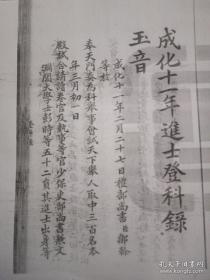 成化十一年進士登科錄
玉音
成化十一年二月二十七日禮部尚書臣鄒幹
等於
奉天門奏為科舉事會試天下舉人取中三百名本
年三月初一日
殿試合請讀卷官及執事等官少保吏部尚書兼文
淵閣大學士彭時等五十二員其進士出身等